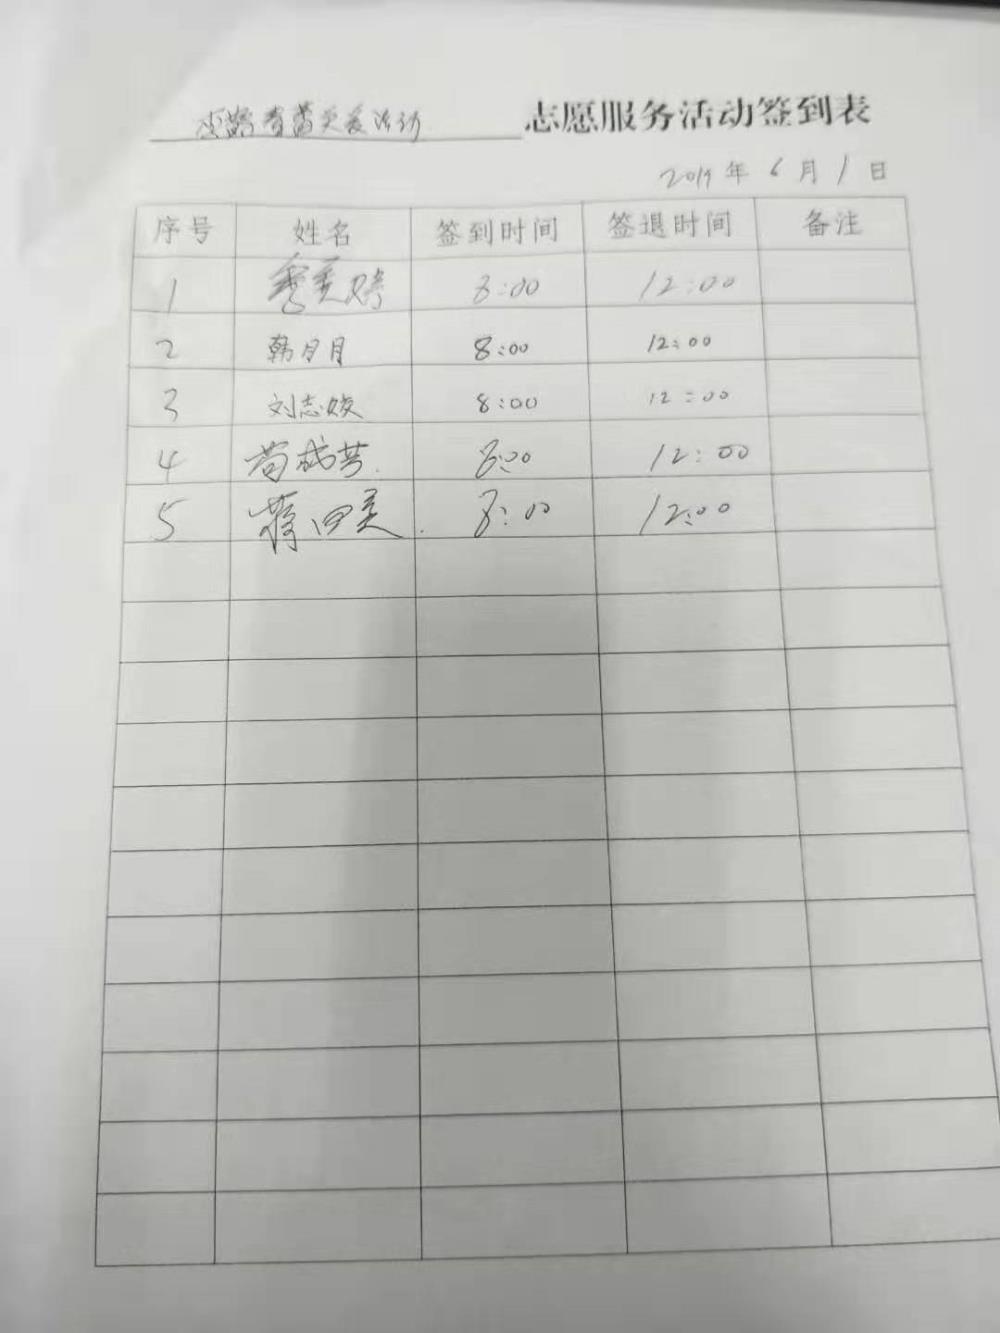 关爱活动 志愿服务活动签到表
2019年6月1日
序号 姓名 签到时间 签退时间 备注
1 8:00 12:00
2 韩月月 8:00 12:00
3 刘志姣 8:00 12:00
4 8:00 12:00
5 蒋四美 8:00 12:00